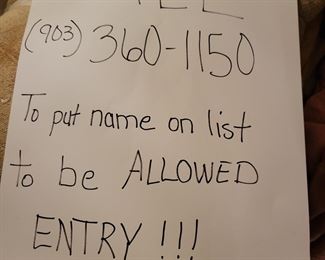 (903) 360-1150
To put name on list
to be ALLOWED
ENTRY !!!